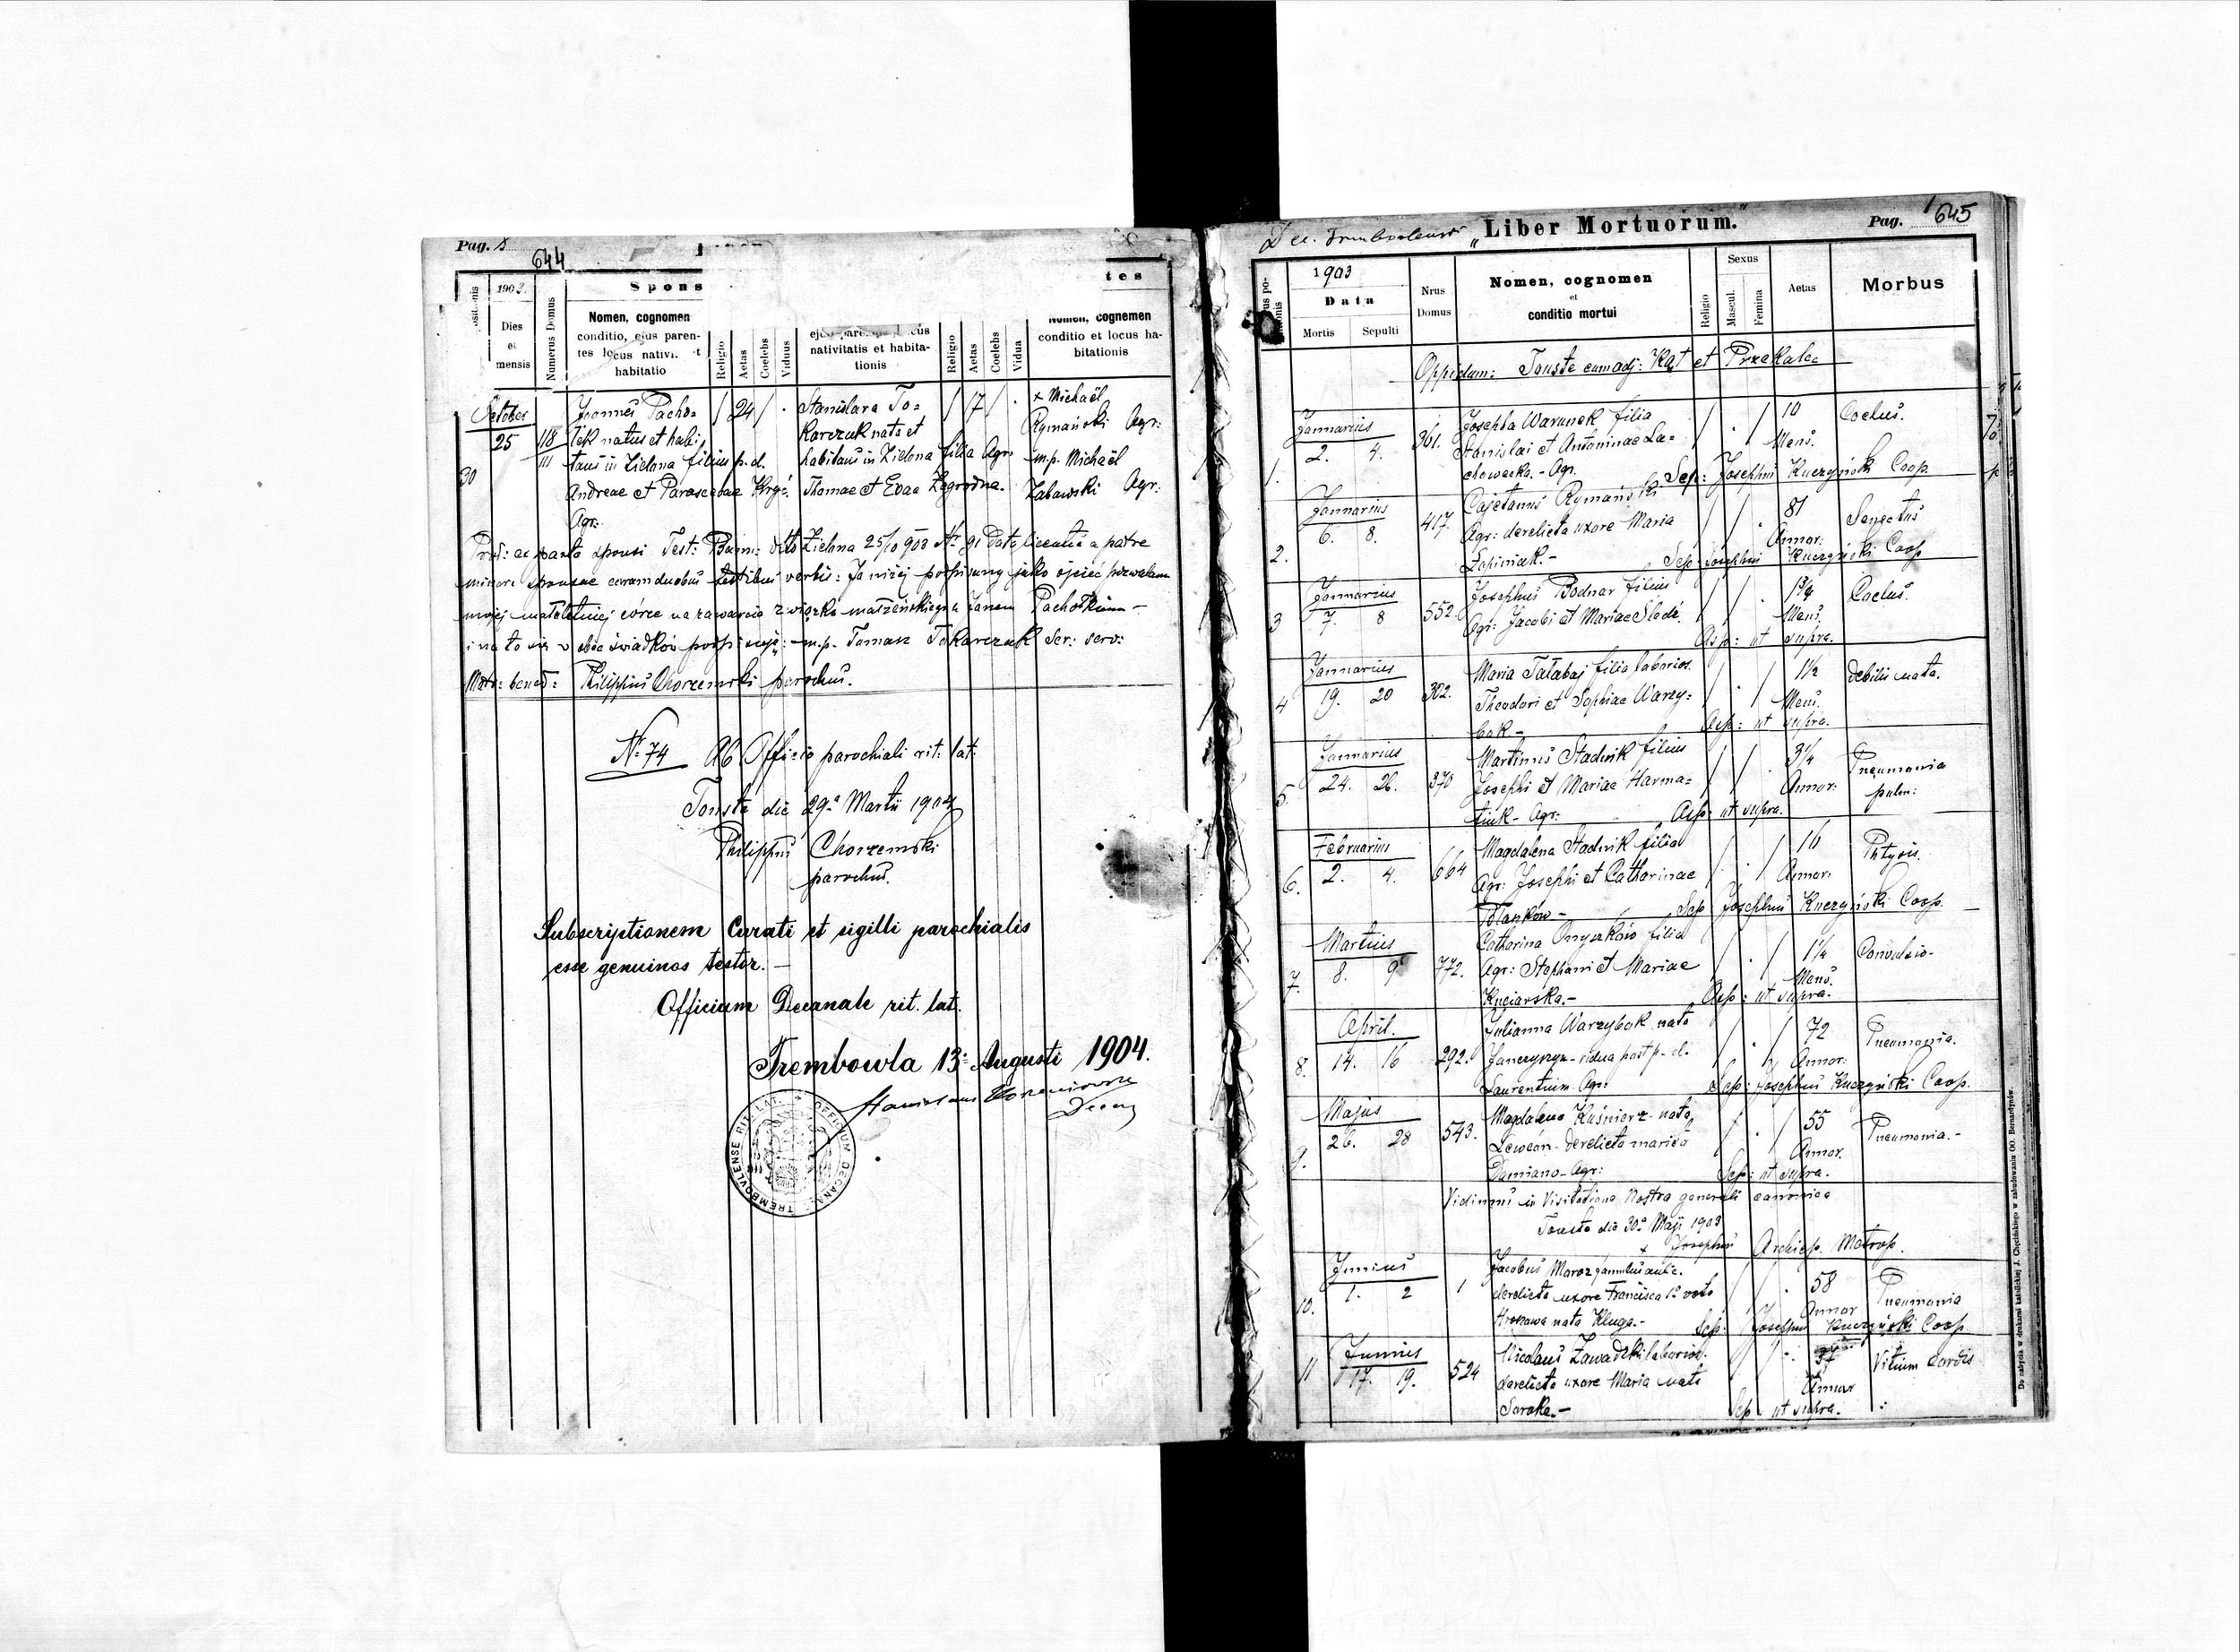 Pag. 8
644
Spons
tes
1903.
Dies
et
mensis
Numerus Domus
Nomen, cognomen
conditio, ejus paren-
tes locus nativi. t
habitatio
Religio
Aetas
Coelebs
Viduus
nativitatis et habita-
tionis
Religio
Aetas
Coelebs
Vidua
Nomen, cognemen
conditio et locus ha-
bitationis
October
25
30
118
111
Joannes Pacho=
łek natus et habi=
tans in Zielona filius p. d.
Andreae et Parascevae Kryć.
Agr:
24
Stanislava To=
karczuk nata et
habitans in Zielona filia Agr:
Thomae et Evae Zagrodna.
17
+ Michaël
Rymański Agr:
m.p. Michaël
Zabawski Agr:
Prod: ex parte sponsi Test: Bann: dtto Zielona 25/10 903 Nr 91 Data licentia a patre
minore sponsae coram duobus testibus verbis: Ja niżej podpisany jako ojciec pozwalam
mojej małoletniej córce na zawarcie związku małżeńskiego z Janem Pachołkiem –
i na to się w obec świadków podpisuję: – m.p. Tomasz Tokarczuk Ser: serv:
Matr: bened: Philippus Chorzemski parochus.
Nr 74 Ab Officio parochiali rit: lat:
Touste die 29a Martii 1904
Philippus Chorzemski
parochus.
Subscriptionem Curati et sigilli parochialis
esse genuinos testor. –
Officium Decanale rit. lat.
Trembowla 13a Augusti 1904.
OFFICIUM DECANALE TREMBOVLENSE RIT. LAT.
"Liber Mortuorum."
Pag. 645
1903
Data
Mortis
Sepulti
Nrus
Domus
Nomen, cognomen
et
conditio mortui
Religio
Sexus
Mascul.
Femina
Aetas
Morbus
Oppidum: Touste cum adj: Kąt et Przekalec
1.
Januarius
2. 4.
361.
Josepha Warunek filia
Stanislai et Antoninae La=
chowacka. – Agr.
10
Mens.
Coelus.
Sep: Josephus Kuczyński Coop
2.
Januarius
6. 8.
417.
Cajetanus Rymański
Agr: derelicta uxore Maria
Łapiniak. –
81
Annor:
Senectus
Sep: Josephus Kuczyński Coop
3
Januarius
7. 8
552.
Josephus Bodnar filius
Agr: Jacobi et Mariae Śledź.
1 3/4
Mens.
Coelus.
Sep: ut supra.
4
Januarius
19. 20
302.
Maria Tałabaj filia laborios.
Theodori et Sophiae Warzy=
bok –
1 1/2
Mens.
debilis nata.
Sep: ut supra.
5.
Januarius
24. 26.
370
Martinus Stadnik filius
Josephi et Mariae Harma=
tiuk – Agr:
3 1/4
Annor:
Pneumonia
pulm:
Sep: ut supra.
6.
Februarius
2. 4.
664
Magdalena Stadnik filia
Agr: Josephi et Catharinae
Polańków –
16
Annor:
Phtysis.
Sep Josephus Kuczyński Coop.
7.
Martius
8. 9
772.
Catharina Onyszków filia
Agr: Stephani et Mariae
Kuciarska. –
1 1/4
Mens.
Convulsio-
Sep: ut supra.
8.
April.
14. 16
292.
Julianna Warzybok nata
Janczyszyn – vidua post p. d.
Laurentium Agr:
72
Annor:
Pneumonia.
Sep: Josephus Kuczyński Coop.
9.
Majus
26. 28
543.
Magdalena Kuśnierz nata
Lewcón – derelicto marito
Damiano – Agr:
55
Annor.
Pneumonia. –
Sep: ut supra.
Vidimus in Visitatione Nostra generali canonica
Touste die 30a Maji 1903
+ Josephus Archiep. Metrop.
10.
Junius
1. 2
1
Jacobus Moroz famulus aulic.
derelicta uxore Francisca 1o voto
nata Kluga. –
58
Annor
Pneumonia
Sep: Josephus Kuczyński Coop
11
Junius
17. 19.
524
Nicolaus Zawadzki laborios.
derelicta uxore Maria nata
Soroka. –
37
Annor
Vitium cordis
Sep: ut supra.
Do nabycia w drukarni katolickiej J. Chęcińskiego w zabudowaniu OO. Bernardynów.